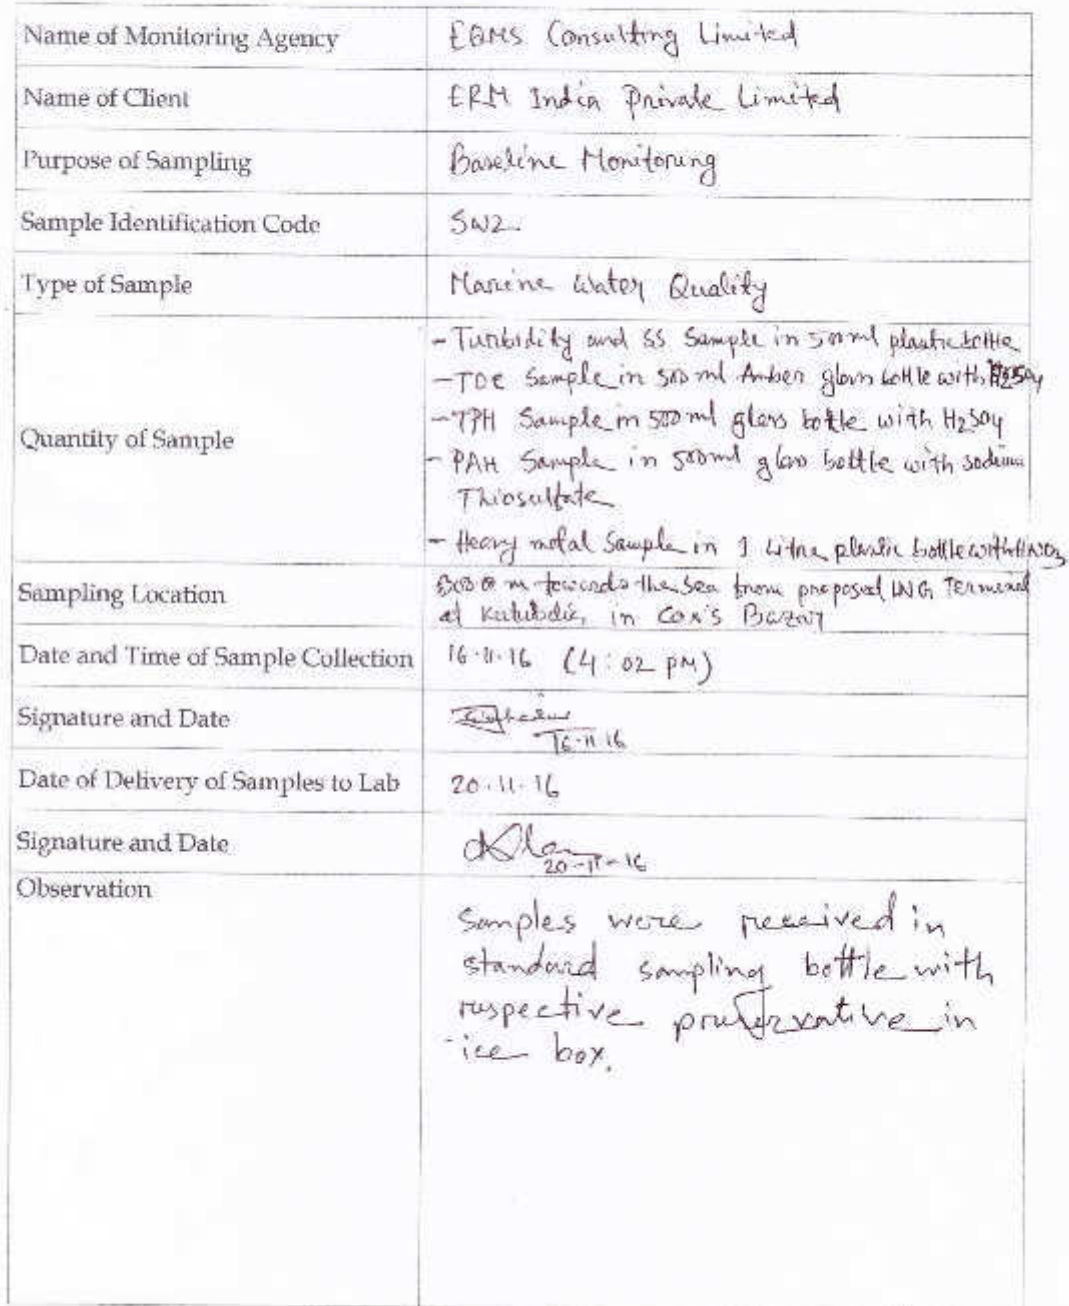 Name of Monitoring Agency EQMS Consulting Limited
Name of Client ERM India Private Limited
Purpose of Sampling Baseline Monitoring
Sample Identification Code SW2
Type of Sample Marine Water Quality
Quantity of Sample
- Turbidity and SS Sample in 500ml plastic bottle
- TOC Sample in 500 ml Amber glass bottle with H2SO4
- TPH Sample in 500 ml glass bottle with H2SO4
- PAH Sample in 500ml glass bottle with sodium
Thiosulfate
- Heavy metal Sample in 1 Litre plastic bottle with HNO3
Sampling Location m towards the Sea from proposed LNG Terminal
at Kutubdia, in Cox's Bazar
Date and Time of Sample Collection 16.11.16 (4:02 PM)
Signature and Date
16.11.16
Date of Delivery of Samples to Lab 20.11.16
Signature and Date
20-11-16
Observation
Samples were received in
standard sampling bottle with
respective preservative in
ice box.